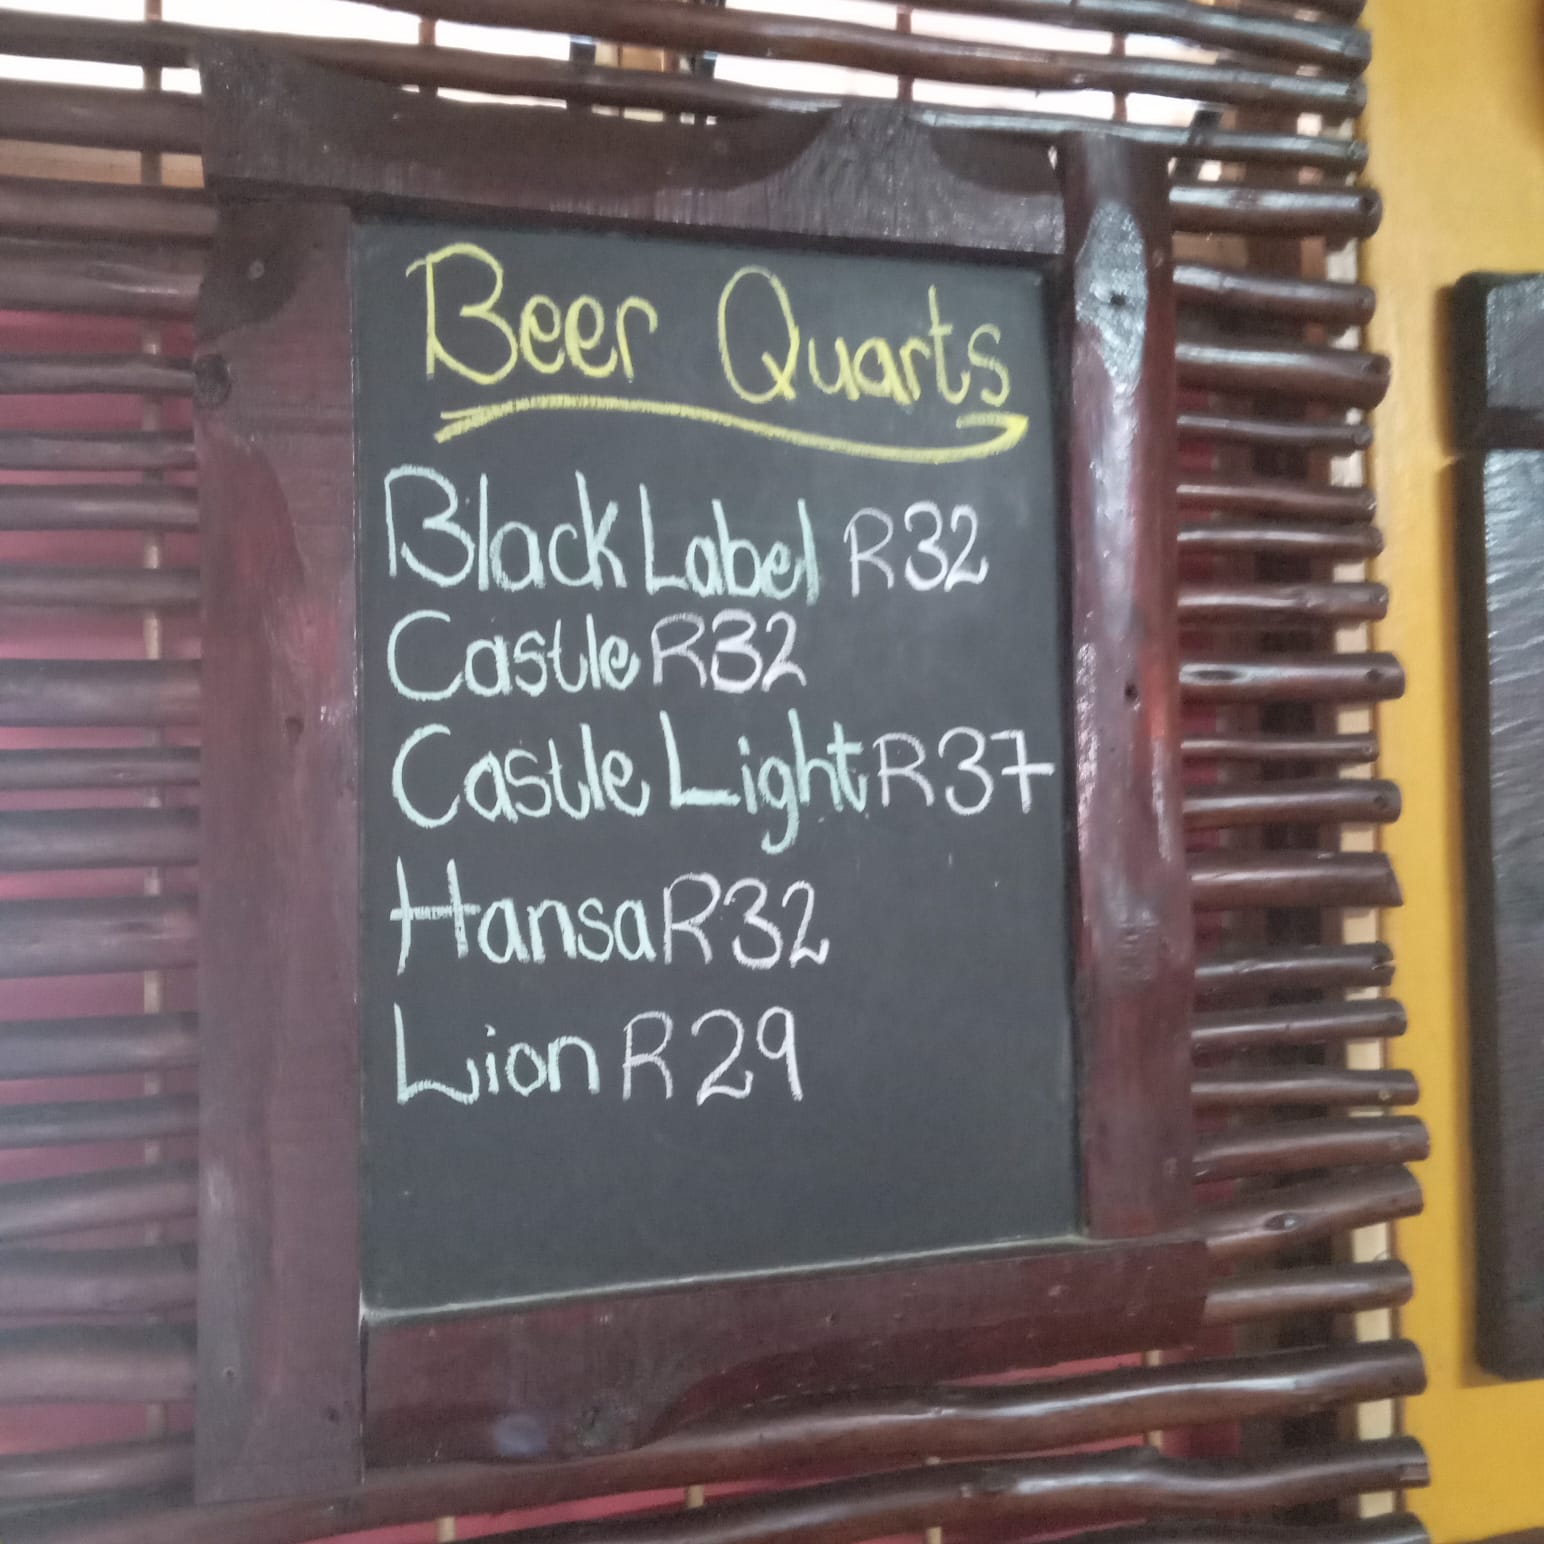 Beer Quarts
Black Label R32
Castle R32
Castle Light R37
Hansa R32
Lion R29